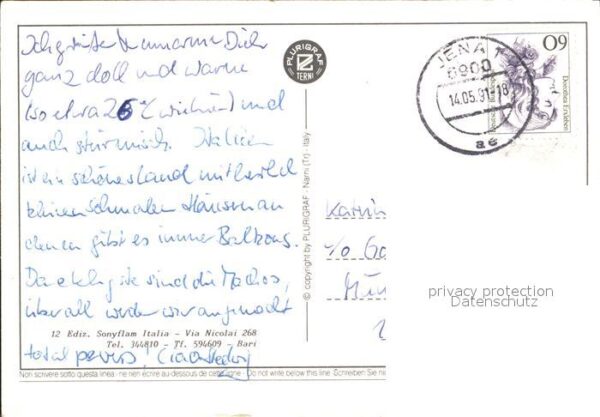 Ich grüße & umarme Dich
ganz doll und warm
(so etwa 26°C wie hier) und
auch stürmisch. Italien
ist ein schönes Land mit
kleinen schmalen Häusern an
denen gibt es immer Balkons.
Das sind die Machos,
überall werden wir angemacht
total pervers! Ciao
12 Ediz. Sonyflam Italia - Via Nicolai 268
Tel. 344810 - Tf. 594609 - Bari
Non scrivere sotto questa linea · ne rien écrire au-dessous de cette · Do not write below this line. Schreiben Sie
PLURIGRAF
TERNI
© copyright by PLURIGRAF - Narni (Tr) - Italy
JENA 1
6900
14.05.91-18
ae
60
Dorothea Erxleben
Katrin
c/o
privacy protection
Datenschutz